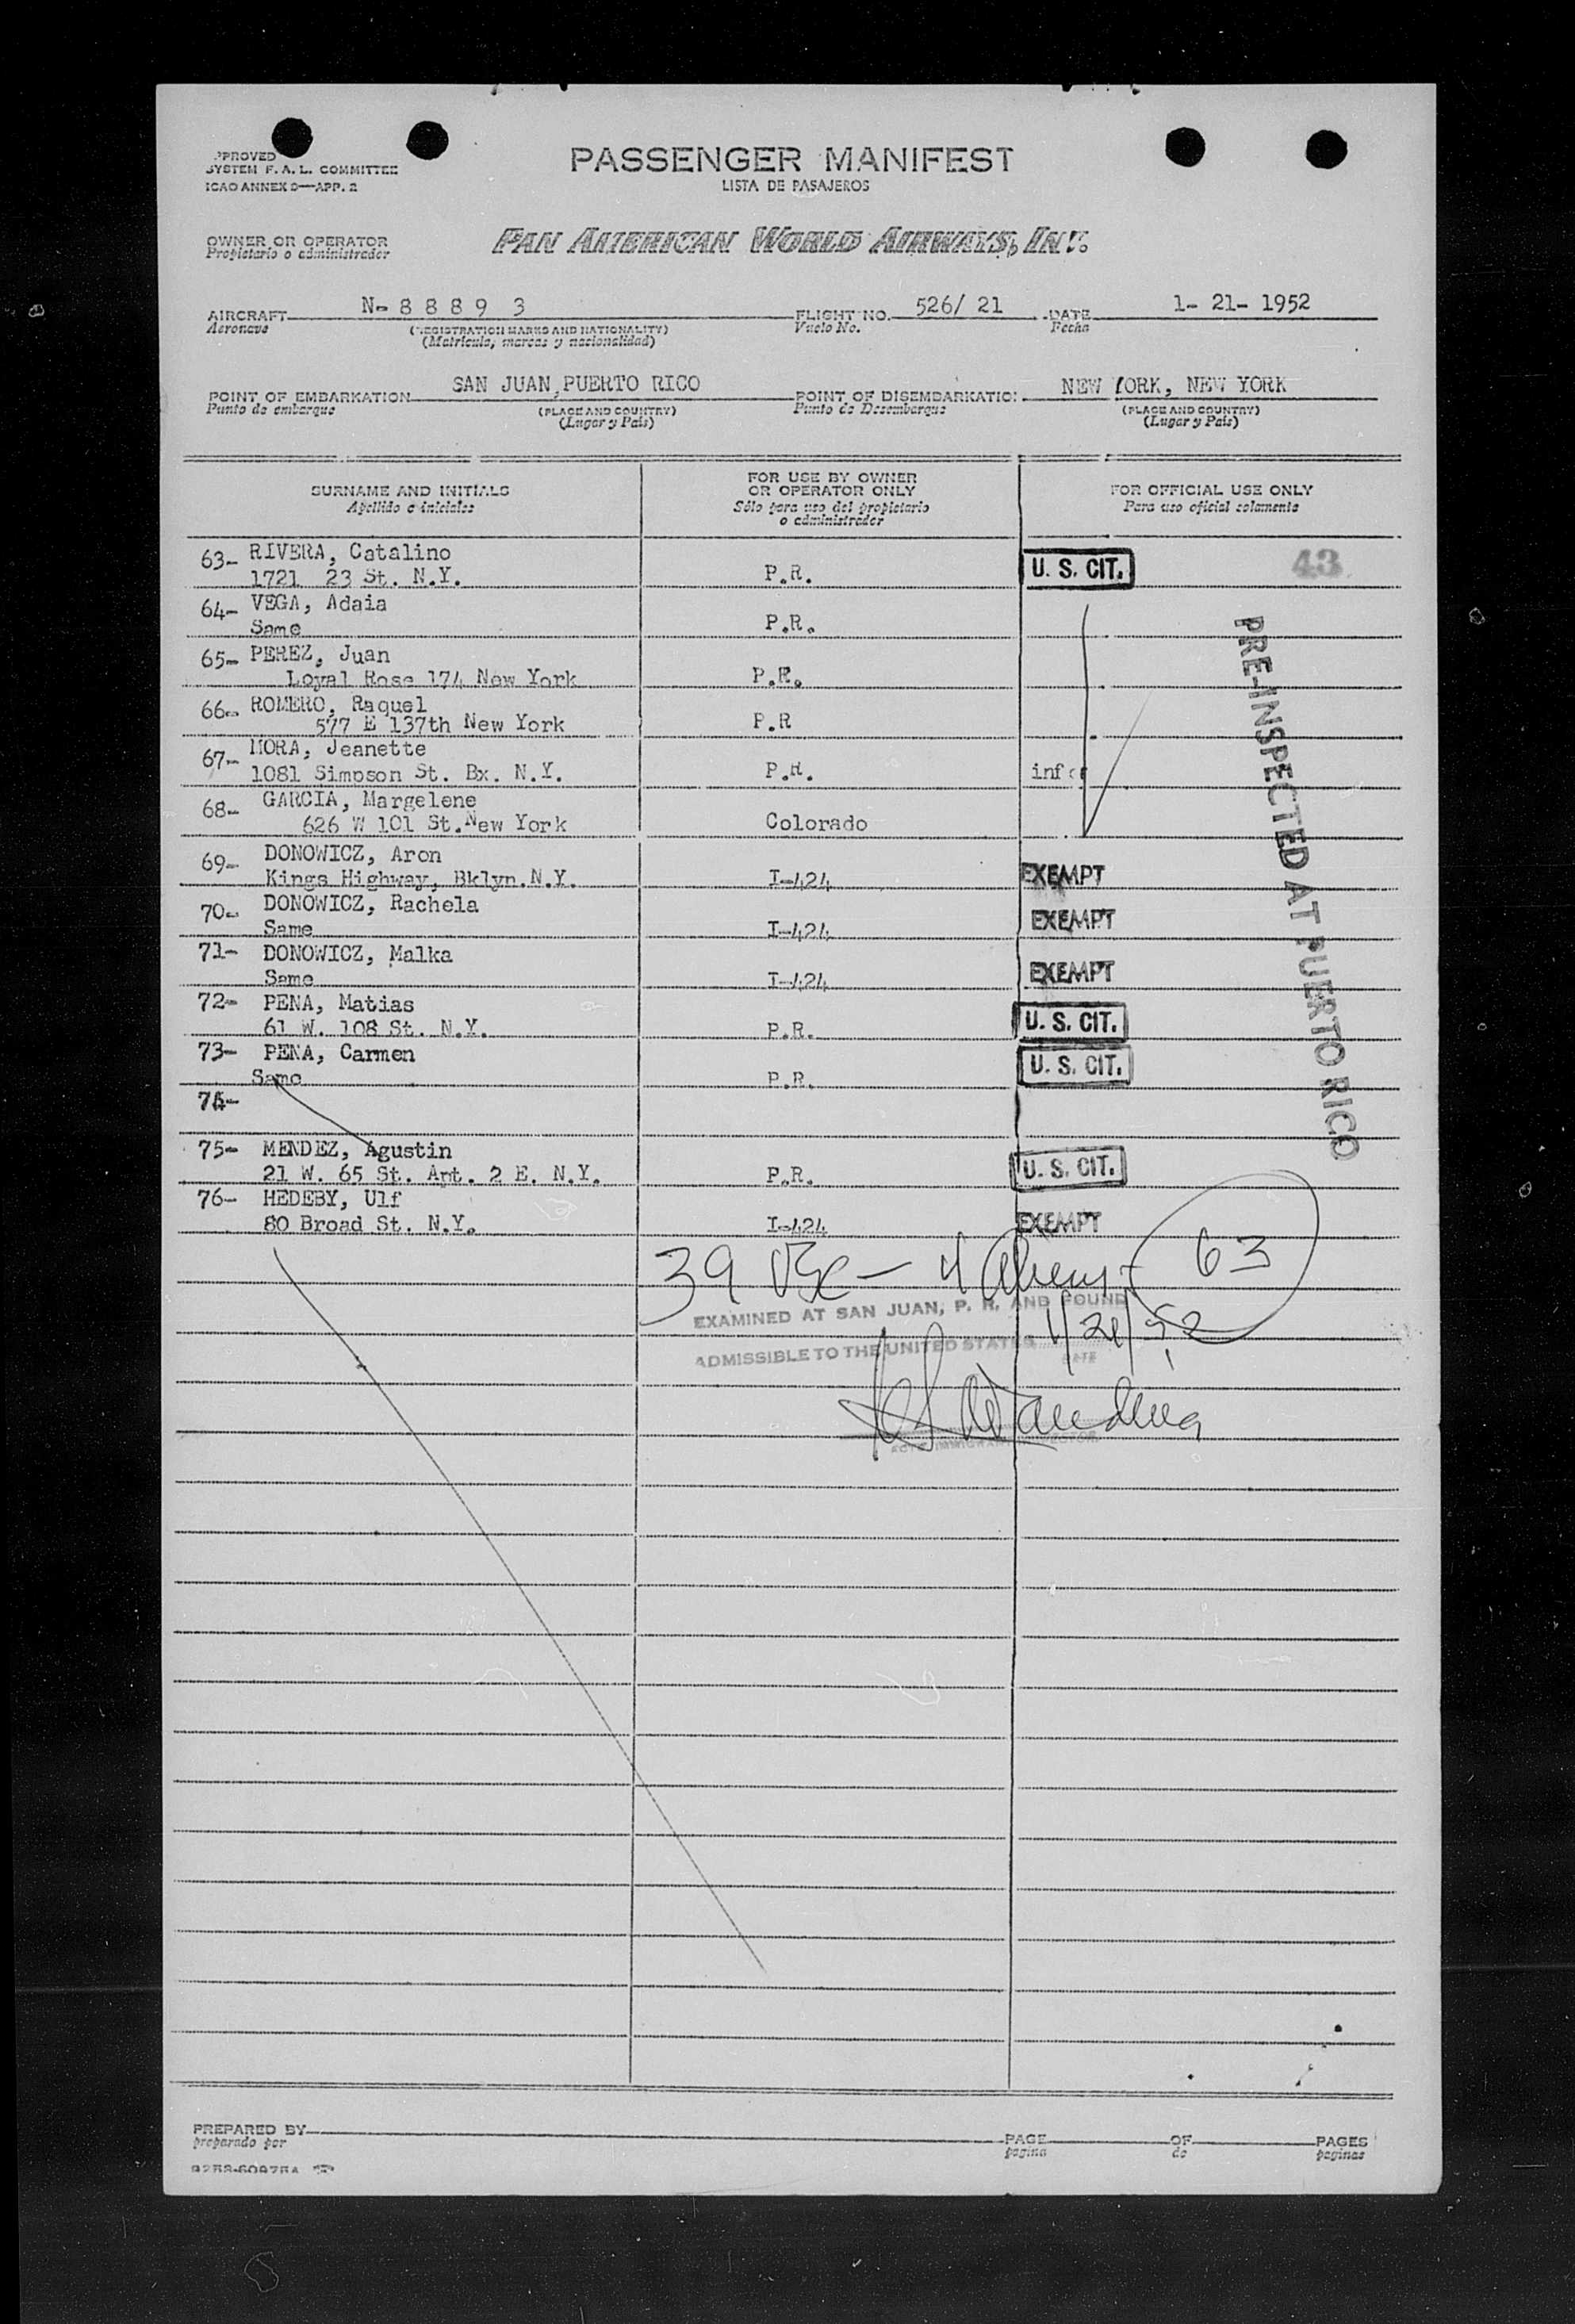 APPROVED
SYSTEM F. A. L. COMMITTEE
ICAO ANNEX 9—APP. 2
PASSENGER MANIFEST
LISTA DE PASAJEROS
OWNER OR OPERATOR
Propietario o administrador
PAN AMERICAN WORLD AIRWAYS, INC.
AIRCRAFT N-8 8 8 9 3 FLIGHT NO. 526/ 21 DATE 1- 21- 1952
Aeronave (REGISTRATION MARKS AND NATIONALITY) Vuelo No. Fecha
(Matricula, marcas y nacionalidad)
POINT OF EMBARKATION SAN JUAN, PUERTO RICO POINT OF DISEMBARKATION NEW YORK, NEW YORK
Punto de embarque (PLACE AND COUNTRY) Punto de Desembarque (PLACE AND COUNTRY)
(Lugar y País) (Lugar y País)
SURNAME AND INITIALS FOR USE BY OWNER OR OPERATOR ONLY FOR OFFICIAL USE ONLY
Apellido e iniciales Sólo para uso del propietario o administrador Para uso oficial solamente
63- RIVERA, Catalino
1721 23 St. N.Y. P.R. U. S. CIT. 43
64- VEGA, Adaia
Same P.R.
65- PEREZ, Juan
Loyal Rose 174 New York P.R.
66- ROMERO, Raquel
577 E 137th New York P.R
67- MORA, Jeanette
1081 Simpson St. Bx. N.Y. P.R. inf
68- GARCIA, Margelene
626 W 101 St. New York Colorado
69- DONOWICZ, Aron
Kings Highway, Bklyn.N.Y. I-424 EXEMPT
70- DONOWICZ, Rachela
Same I-424 EXEMPT
71- DONOWICZ, Malka
Same I-424 EXEMPT
72- PENA, Matias
61 W. 108 St. N.Y. P.R. U. S. CIT.
73- PENA, Carmen
Same P.R. U. S. CIT.
74-
75- MENDEZ, Agustin
21 W. 65 St. Apt. 2 E. N.Y. P.R. U. S. CIT.
76- HEDEBY, Ulf
80 Broad St. N.Y. I-424 EXEMPT
PRE-INSPECTED AT PUERTO RICO
39 - 4 63
EXAMINED AT SAN JUAN, P. R. AND FOUND
ADMISSIBLE TO THE UNITED STATES 1/21/52
DATE
PREPARED BY PAGE OF PAGES
preparado por pagina de paginas